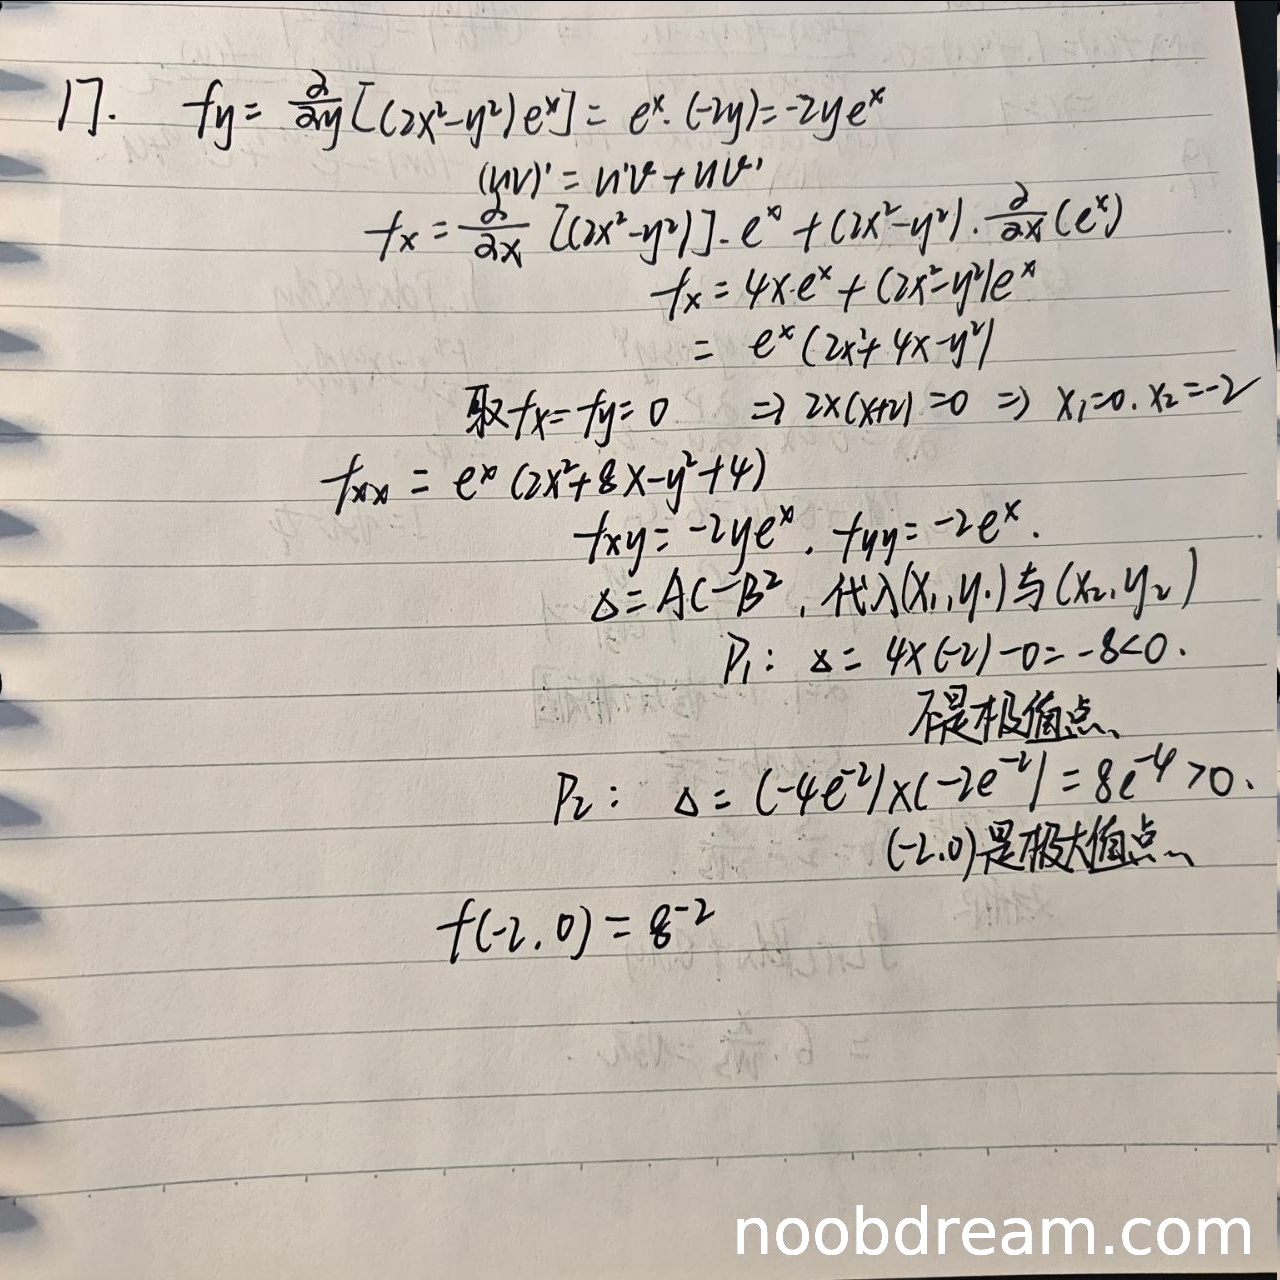 17. fy = ∂/∂y [(2x²-y²)eˣ] = eˣ·(-2y) = -2yeˣ
(uv)' = u'v + uv'
fx = ∂/∂x [(2x²-y²)]·eˣ + (2x²-y²)·∂/∂x(eˣ)
fx = 4x·eˣ + (2x²-y²)eˣ
= eˣ(2x²+4x-y²)
取fx=fy=0 ⇒ 2x(x+2)=0 ⇒ x₁=0. x₂=-2
fxx = eˣ(2x²+8x-y²+4)
fxy = -2yeˣ. fyy = -2eˣ.
Δ=AC-B², 代入(x₁,y₁)与(x₂,y₂)
P₁: Δ= 4×(-2)-0=-8<0.
不是极值点、
P₂: Δ = (-4e⁻²)×(-2e⁻²) = 8e⁻⁴>0.
(-2,0)是极大值点、
f(-2,0) = 8⁻²
noobdream.com